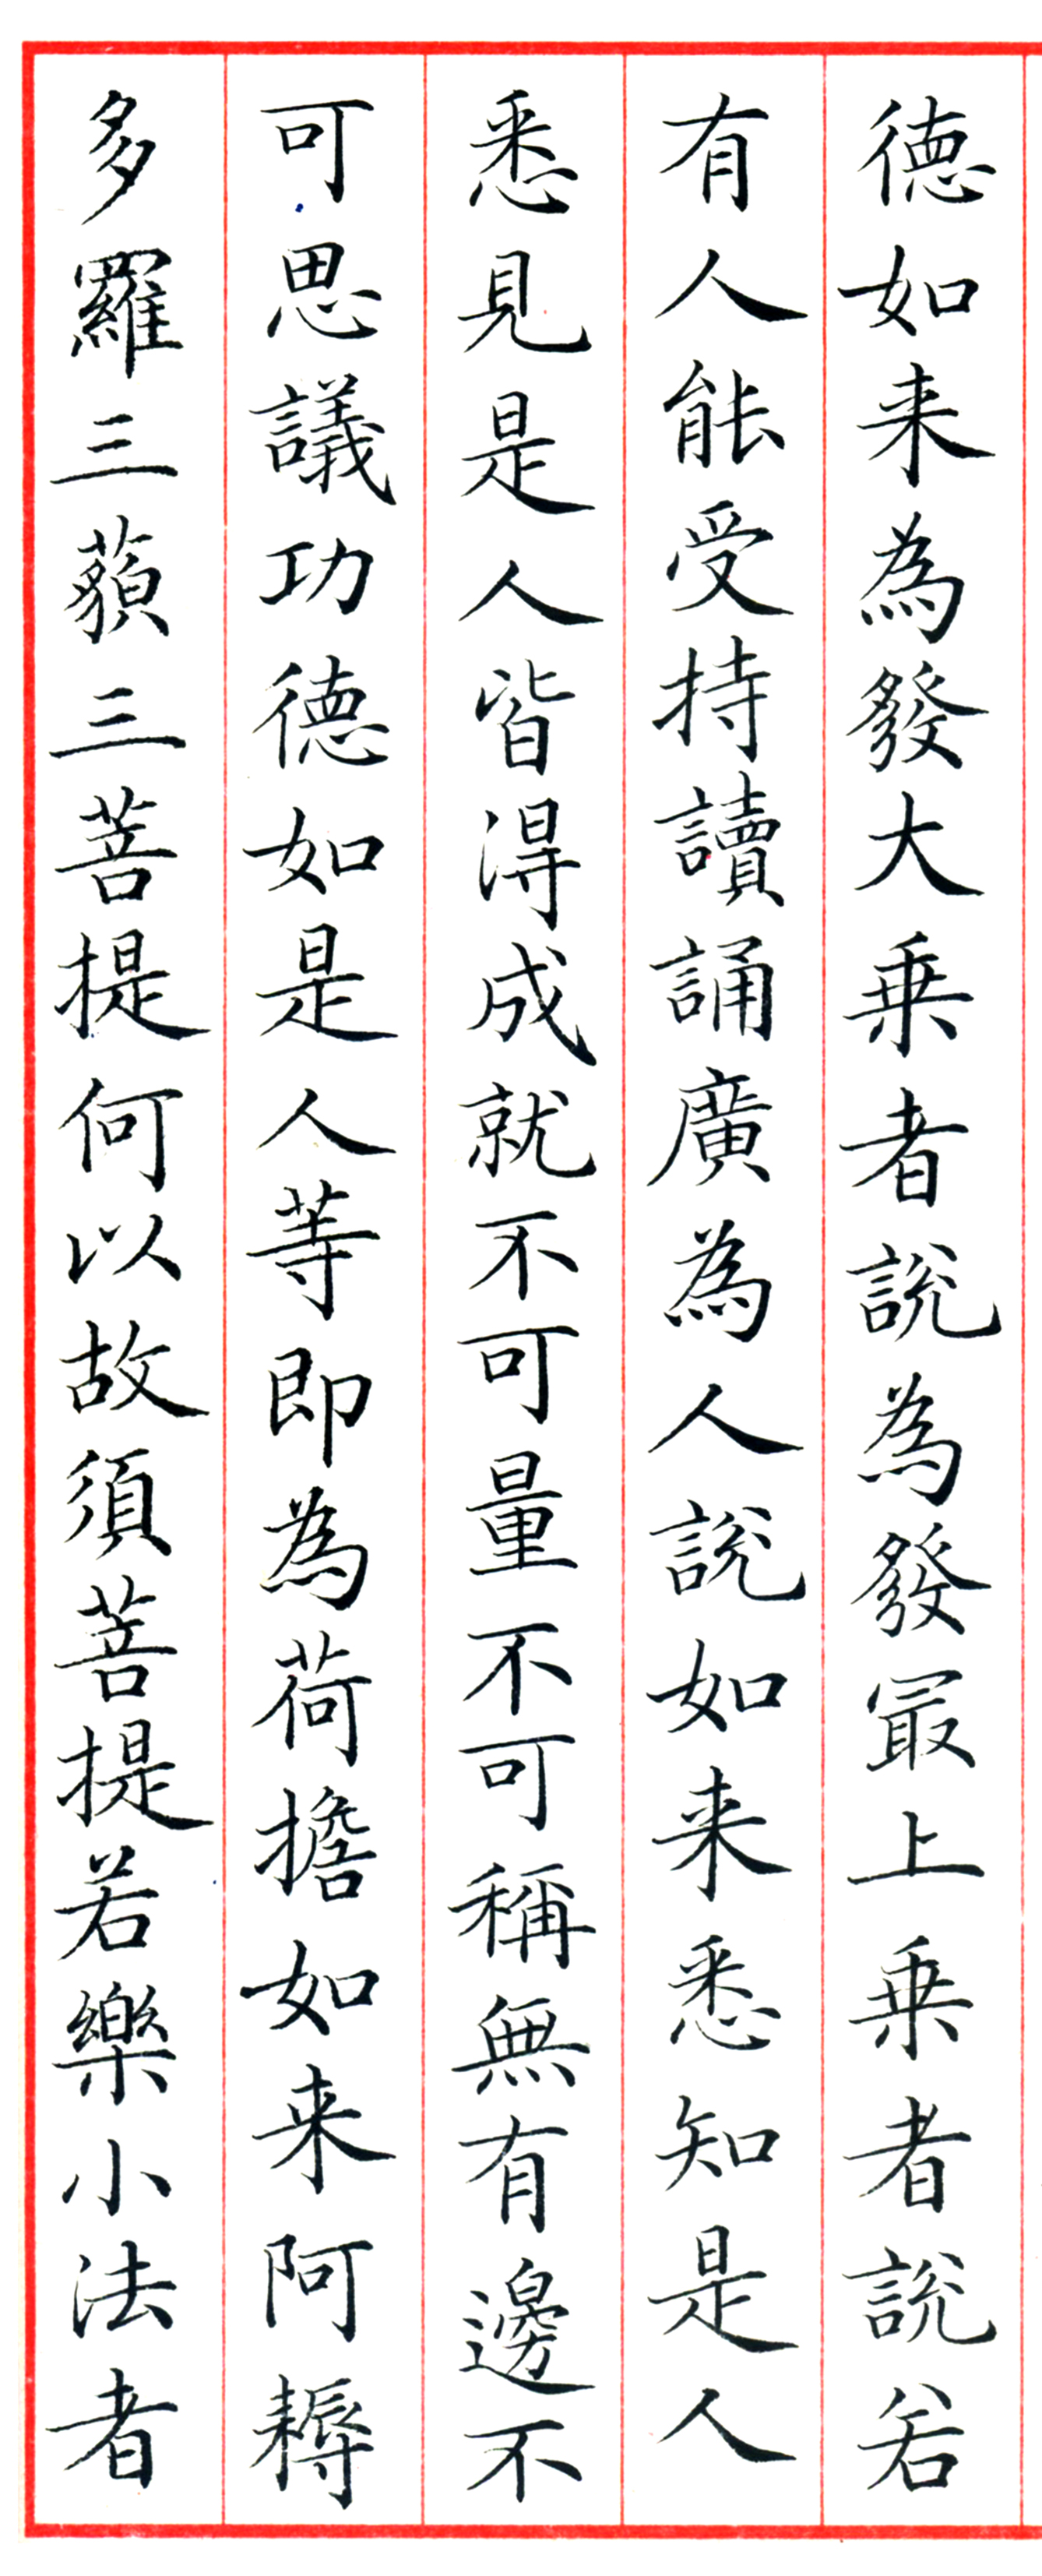 德如来為發大乗者說為發冣上乗者說若
有人能受持讀誦廣為人說如来悉知是人
悉見是人皆得成就不可量不可稱無有邊不
可思議功德如是人等即為荷擔如来阿耨
多羅三藐三菩提何以故須菩提若樂小法者